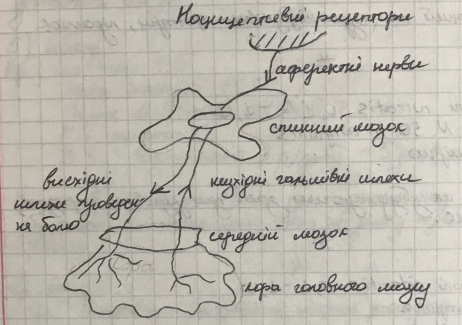 Ноцицептивні рецептори
аферентні нерви
спинний мозок
висхідні
шляхи проведен
ня болю
низхідні гальмівні шляхи
середній мозок
кора головного мозку